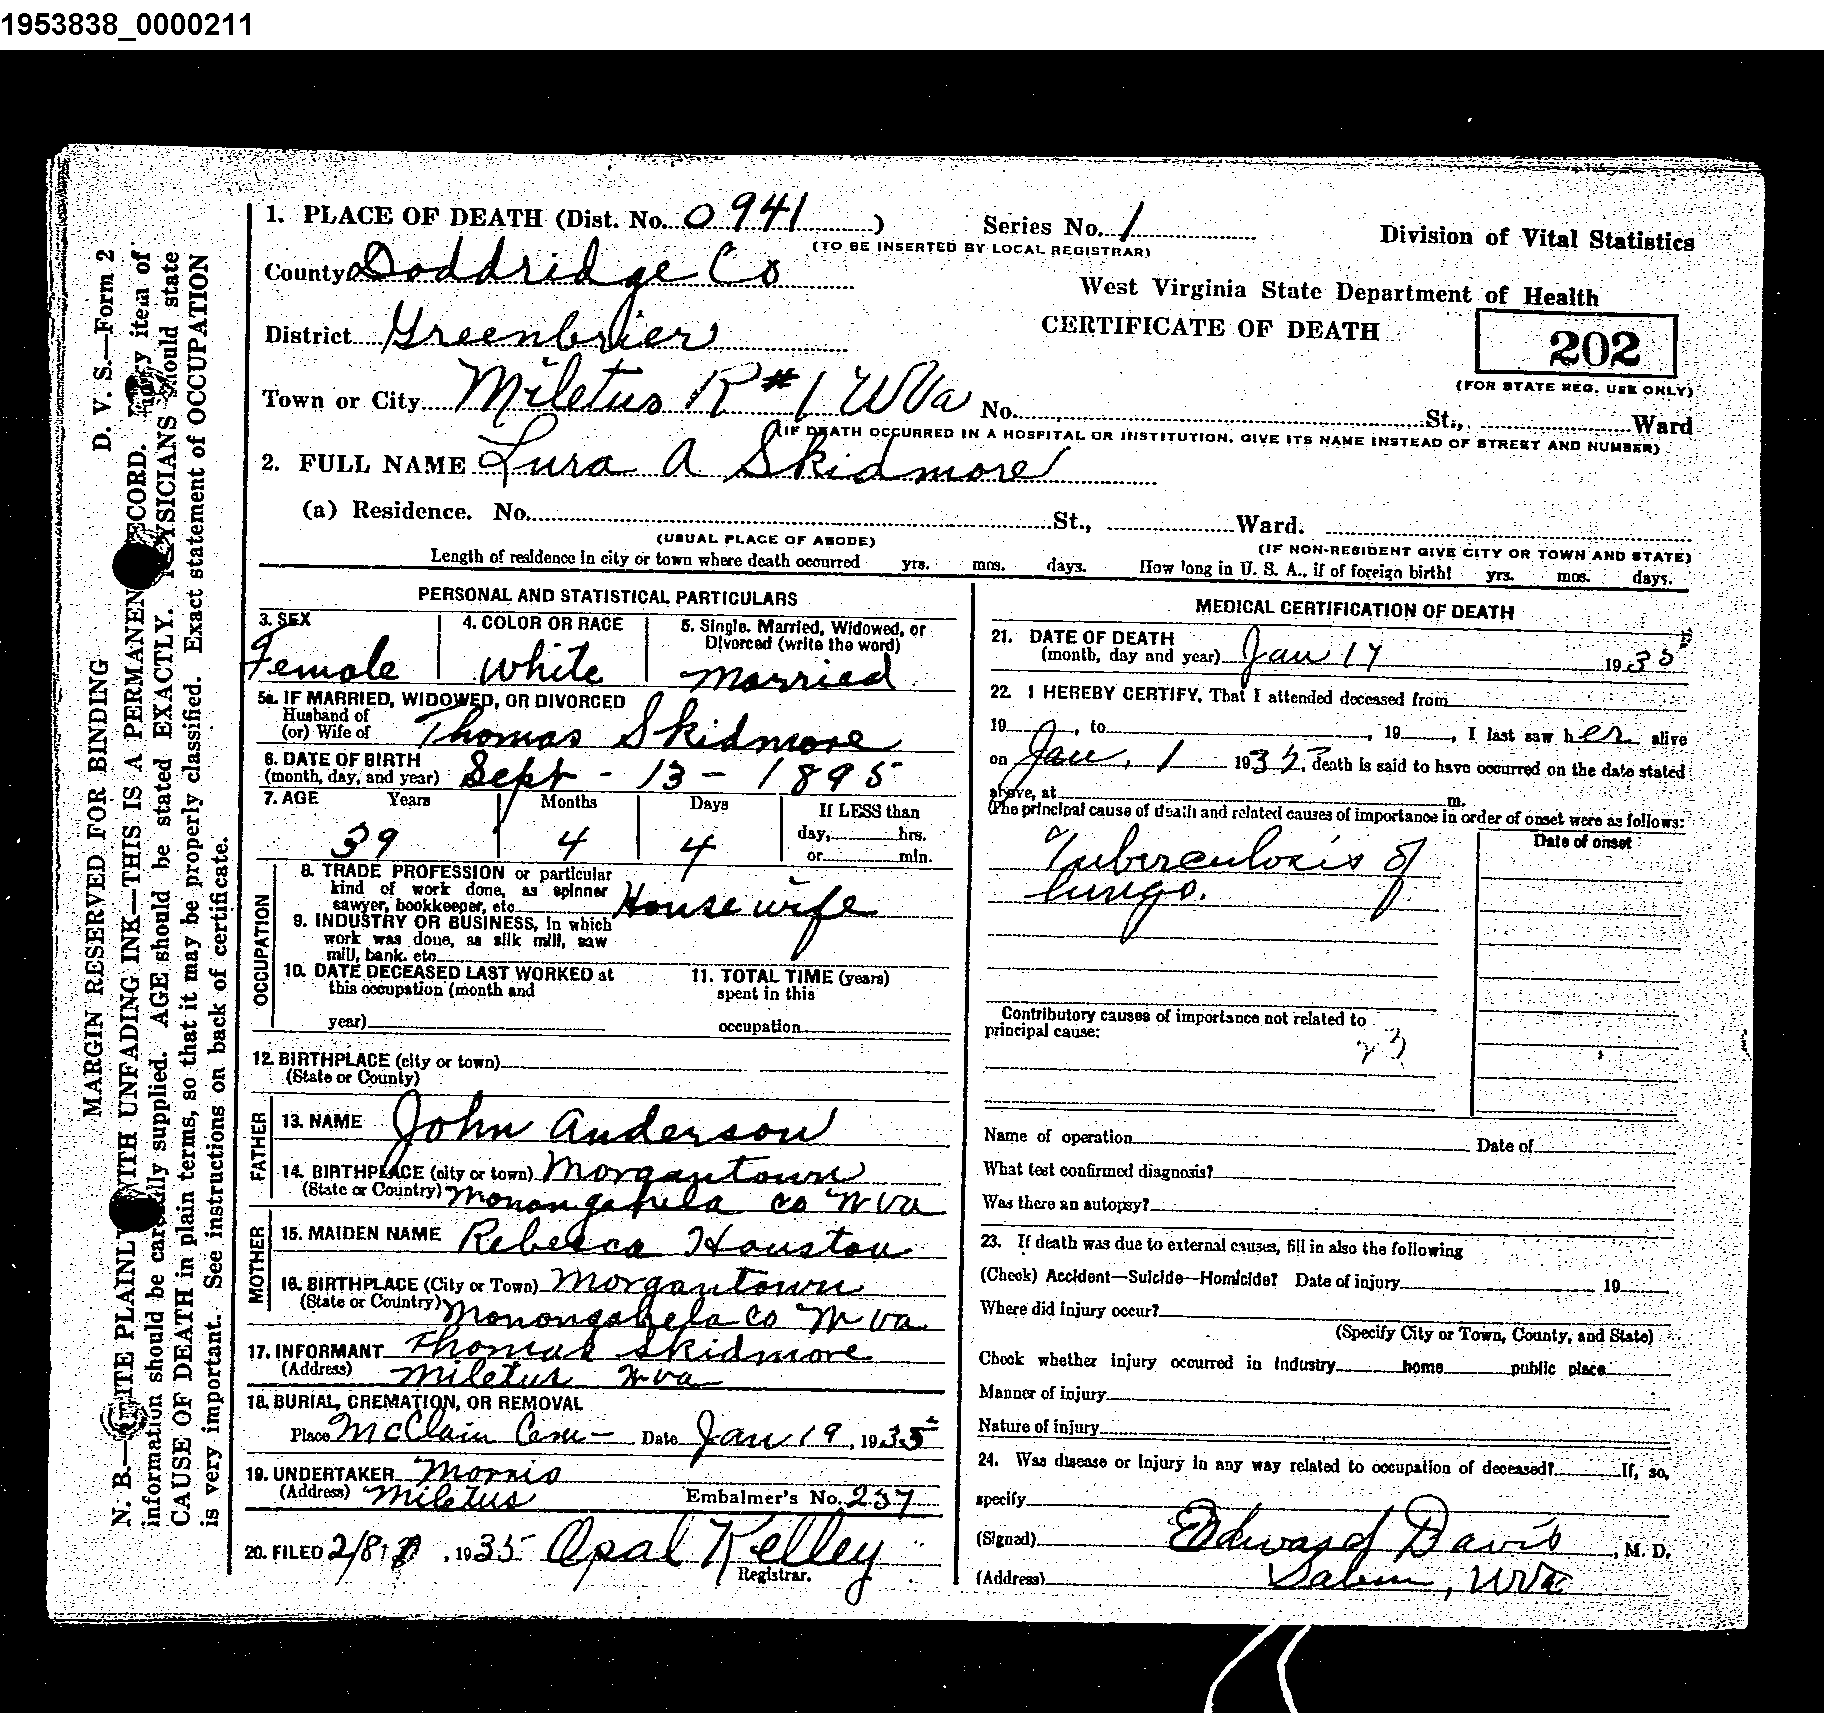 1953838_0000211
1. PLACE OF DEATH (Dist. No. 0941 ) Series No. 1 Division of Vital Statistics
(TO BE INSERTED BY LOCAL REGISTRAR)
County Doddridge Co
West Virginia State Department of Health
District Greenbrier CERTIFICATE OF DEATH 202
(FOR STATE REG. USE ONLY)
Town or City Miletus R #1 WVa No. St., Ward
(IF DEATH OCCURRED IN A HOSPITAL OR INSTITUTION, GIVE ITS NAME INSTEAD OF STREET AND NUMBER)
2. FULL NAME Lura A Skidmore
(a) Residence. No. St., Ward.
(USUAL PLACE OF ABODE) (IF NON-RESIDENT GIVE CITY OR TOWN AND STATE)
Length of residence in city or town where death occurred yrs. mos. days. How long in U. S. A., if of foreign birth? yrs. mos. days.
PERSONAL AND STATISTICAL PARTICULARS
3. SEX 4. COLOR OR RACE 5. Single, Married, Widowed, or
Divorced (write the word)
Female White Married
5a. IF MARRIED, WIDOWED, OR DIVORCED
Husband of
(or) Wife of Thomas Skidmore
6. DATE OF BIRTH
(month, day, and year) Sept - 13 - 1895
7. AGE Years Months Days If LESS than
day, hrs.
39 4 4 or min.
OCCUPATION
8. TRADE PROFESSION or particular
kind of work done, as spinner
sawyer, bookkeeper, etc. House wife
9. INDUSTRY OR BUSINESS, in which
work was done, as silk mill, saw
mill, bank, etc.
10. DATE DECEASED LAST WORKED at 11. TOTAL TIME (years)
this occupation (month and spent in this
year) occupation
12. BIRTHPLACE (city or town)
(State or County)
FATHER
13. NAME John Anderson
14. BIRTHPLACE (city or town) Morgantown
(State or Country) Monongahela Co W Va
MOTHER
15. MAIDEN NAME Rebecca Houston
16. BIRTHPLACE (City or Town) Morgantown
(State or Country) Monongahela Co W Va
17. INFORMANT Thomas Skidmore
(Address) Miletus W Va
18. BURIAL, CREMATION, OR REMOVAL
Place McClain Cem - Date Jan 19, 1935
19. UNDERTAKER Morris
(Address) Miletus Embalmer's No. 237
20. FILED 2/8, 1935 Opal Kelley
Registrar.
MEDICAL CERTIFICATION OF DEATH
21. DATE OF DEATH
(month, day and year) Jan 17 1935
22. I HEREBY CERTIFY, That I attended deceased from
19 , to , 19 , I last saw her alive
on Jan. 1 1935, death is said to have occurred on the date stated
above, at m.
(The principal cause of death and related causes of importance in order of onset were as follows:
Date of onset
Tuberculosis of
lungs.
Contributory causes of importance not related to
principal cause:
23
Name of operation Date of
What test confirmed diagnosis?
Was there an autopsy?
23. If death was due to external causes, fill in also the following
(Check) Accident—Suicide—Homicide? Date of injury 19
Where did injury occur?
(Specify City or Town, County, and State)
Check whether injury occurred in industry home public place
Manner of injury
Nature of injury
24. Was disease or injury in any way related to occupation of deceased? If, so,
specify
(Signed) Edward Davis, M. D.
(Address) Salem, WVa
D. V. S.—Form 2
MARGIN RESERVED FOR BINDING
WITH UNFADING INK—THIS IS A PERMANENT RECORD. Every item of
information should be carefully supplied. AGE should be stated EXACTLY. PHYSICIANS should state
CAUSE OF DEATH in plain terms, so that it may be properly classified. Exact statement of OCCUPATION
is very important. See instructions on back of certificate.
N. B.—WRITE PLAINLY